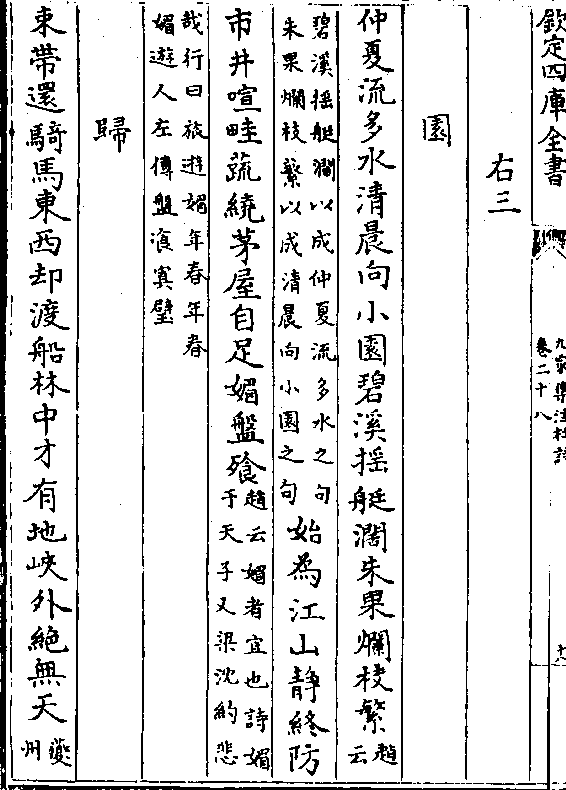 欽定四庫全書
九家集注杜詩
卷二十八
右三
園
仲夏流多水清晨向小園碧溪揺艇濶朱果爛枝繁趙云
碧溪揺艇濶以成仲夏流多水之句
朱果爛枝繁以成清晨向小園之句
始為江山静終防
市井喧畦蔬繞茅屋自足媚盤飱
趙云媚者宜也詩媚
于天子又梁沈約悲
哉行曰旅遊媚年春年春
媚遊人左傳盤飱寘璧
歸
束帶還騎馬東西却渡船林中才有地峽外絶無天夔州